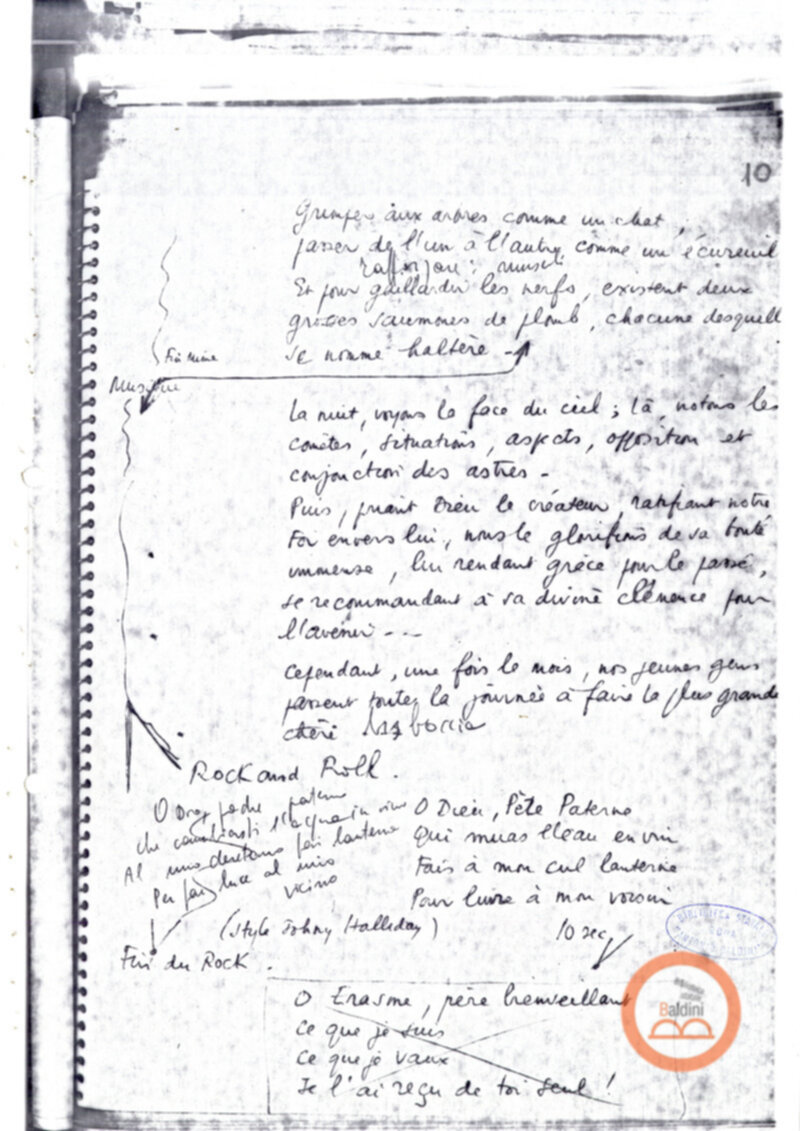 10
Grimper aux arbres comme un chat,
passer de l'un à l'autre comme un écureuil
Et pour gaillardir les nerfs, existent deux
grosses saumones de plomb, chacune desquell
se nomme haltère -
Fin Mime
Musique
La nuit, voyons la face du ciel; là, notons les
comètes, situations, aspects, opposition et
conjonction des astres -
Puis, priant Dieu le créateur, ratifiant notre
Foi envers lui, nous le glorifions de sa bonté
immense, lui rendant grâce pour le passé,
se recommandant à sa divine clémence pour
l'avenir - - -
Cependant, une fois le mois, nos jeunes gens
passent toute la journée à faire la plus grande
chère
Rock and Roll.
O Dieu, Père Paterne
Qui muas l'eau en vin
Fais à mon cul lanterne
Pour luire à mon voisin
padre paterno
che cambiasti l'acqua in vino
Al mio deretano fai lanterna
Per far luce al mio
vicino
(Style Johny Halliday)
10 sec
Fin du Rock.
O Erasme, père bienveillant
Ce que je suis
Ce que je vaux
Je l'ai reçu de toi seul!
BIBLIOTECA
Baldini